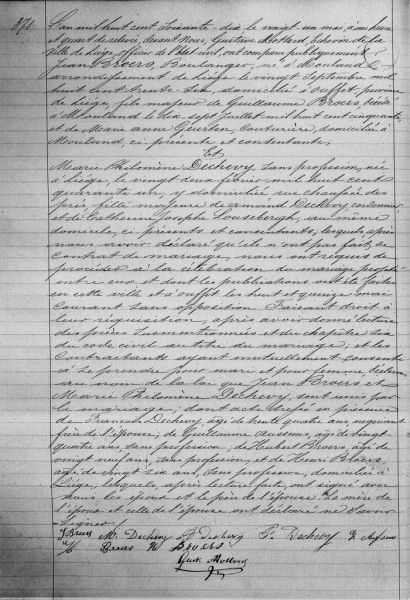 371
L'an mil huit cent soixante dix le vingt un mai à une heure
et quart de relevée, devant Nous, Gustave Mottard Echevin de la
ville de Liège, officier de l'état civil, ont comparu publiquement
Jean Broers, Boulanger, né à Mouland
arrondissement de Liège le vingt Septembre mil
huit cent trente six, domicilié à Ouffet, province
de Liège, fils majeur de Guillaume Broers, décédé
à Mouland le dix sept Juillet mil huit cent cinquante
et de Marie anne Geurten, couturière, domiciliée à
Mouland, ci présente et consentante,
Et
Marie Philomène Dechevy, sans profession, née
à Liège, le vingt deux février mil huit cent
quarante un, y domiciliée rue chaussée des
prés, fille majeure de armand Dechevy cordonnier
et de Catherine Joseph, au même
domicile, ci présents et consentants; lesquels, après
nous avoir déclaré qu'ils n'ont pas fait de
contrat de mariage, nous ont requis de
procéder à la célébration du mariage projeté
entre eux et dont les publications ont été faites
en cette ville et à Ouffet les huit et quinze mai
courant sans opposition. Faisant droit à
leur réquisition, après avoir donné lecture
des pièces susmentionnées et du chapitre six
du code civil au titre du mariage; et les
Contractants ayant mutuellement consenti
à se prendre pour mari et pour femme, déclarons
au nom de la loi que Jean Broers et
Marie Philomène Dechevy, sont unis par
le mariage; dont acte dressé en présence
de François Dechevy, âgé de trente quatre ans, négociant
frère de l'épouse; de Guillaume, âgé de vingt
quatre ans, sans profession, de Hubert Broers âgé de
vingt neuf ans, sans profession, et de Henri Broers,
âgé de vingt six ans, sans profession, domiciliés à
Liège, lesquels, après lecture faite, ont signé avec
nous, les époux et le père de l'épouse. La mère de
l'époux et celle de l'épouse ont déclaré ne savoir
signer/
J Broers M. Dechevy A Dechevy F. Dechevy G
H Broers H Broers
Gust. Mottard